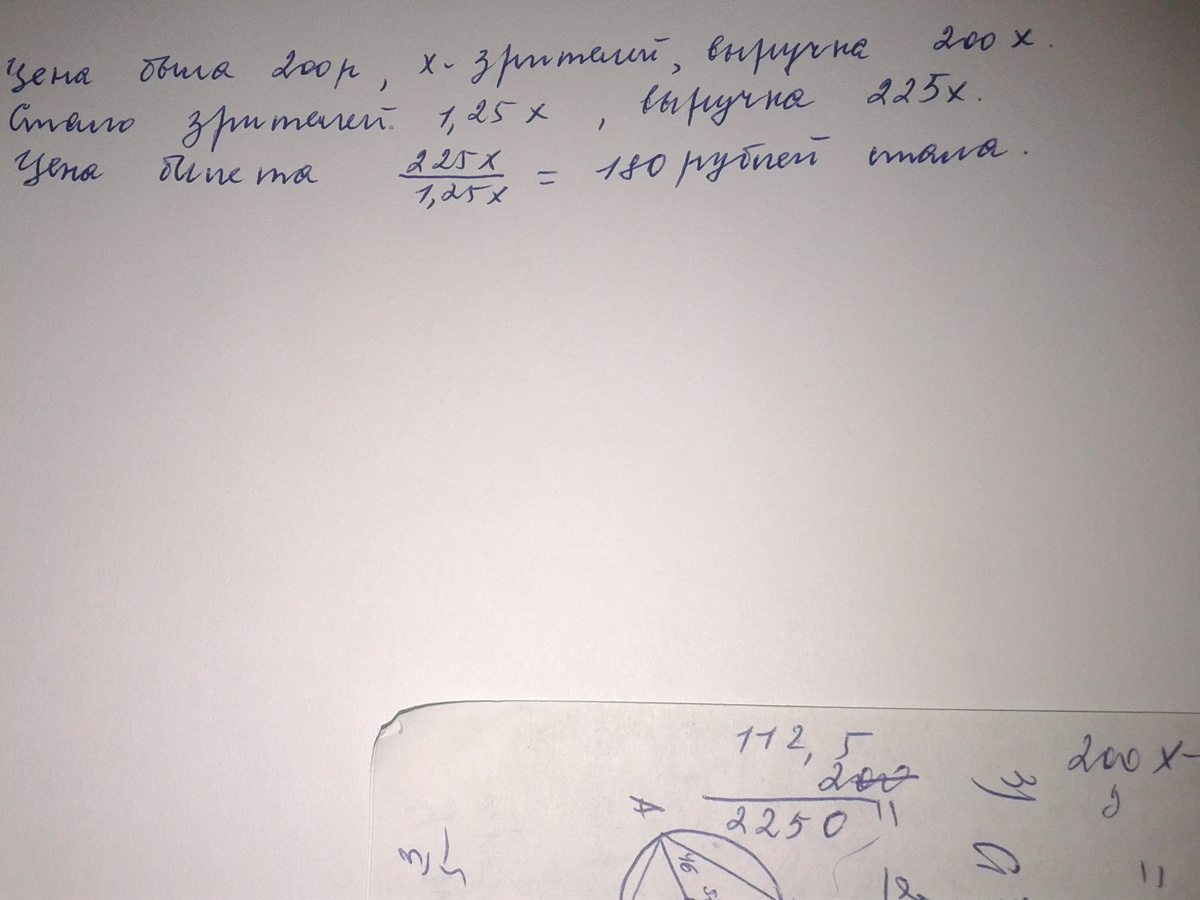 Цена была 200р, х- зрителей, выручка 200х.
Стало зрителей 1,25х, выручка 225х.
Цена билета 225х/1,25х = 180 рублей стала.
112,5
200
2250
200х-
А
46